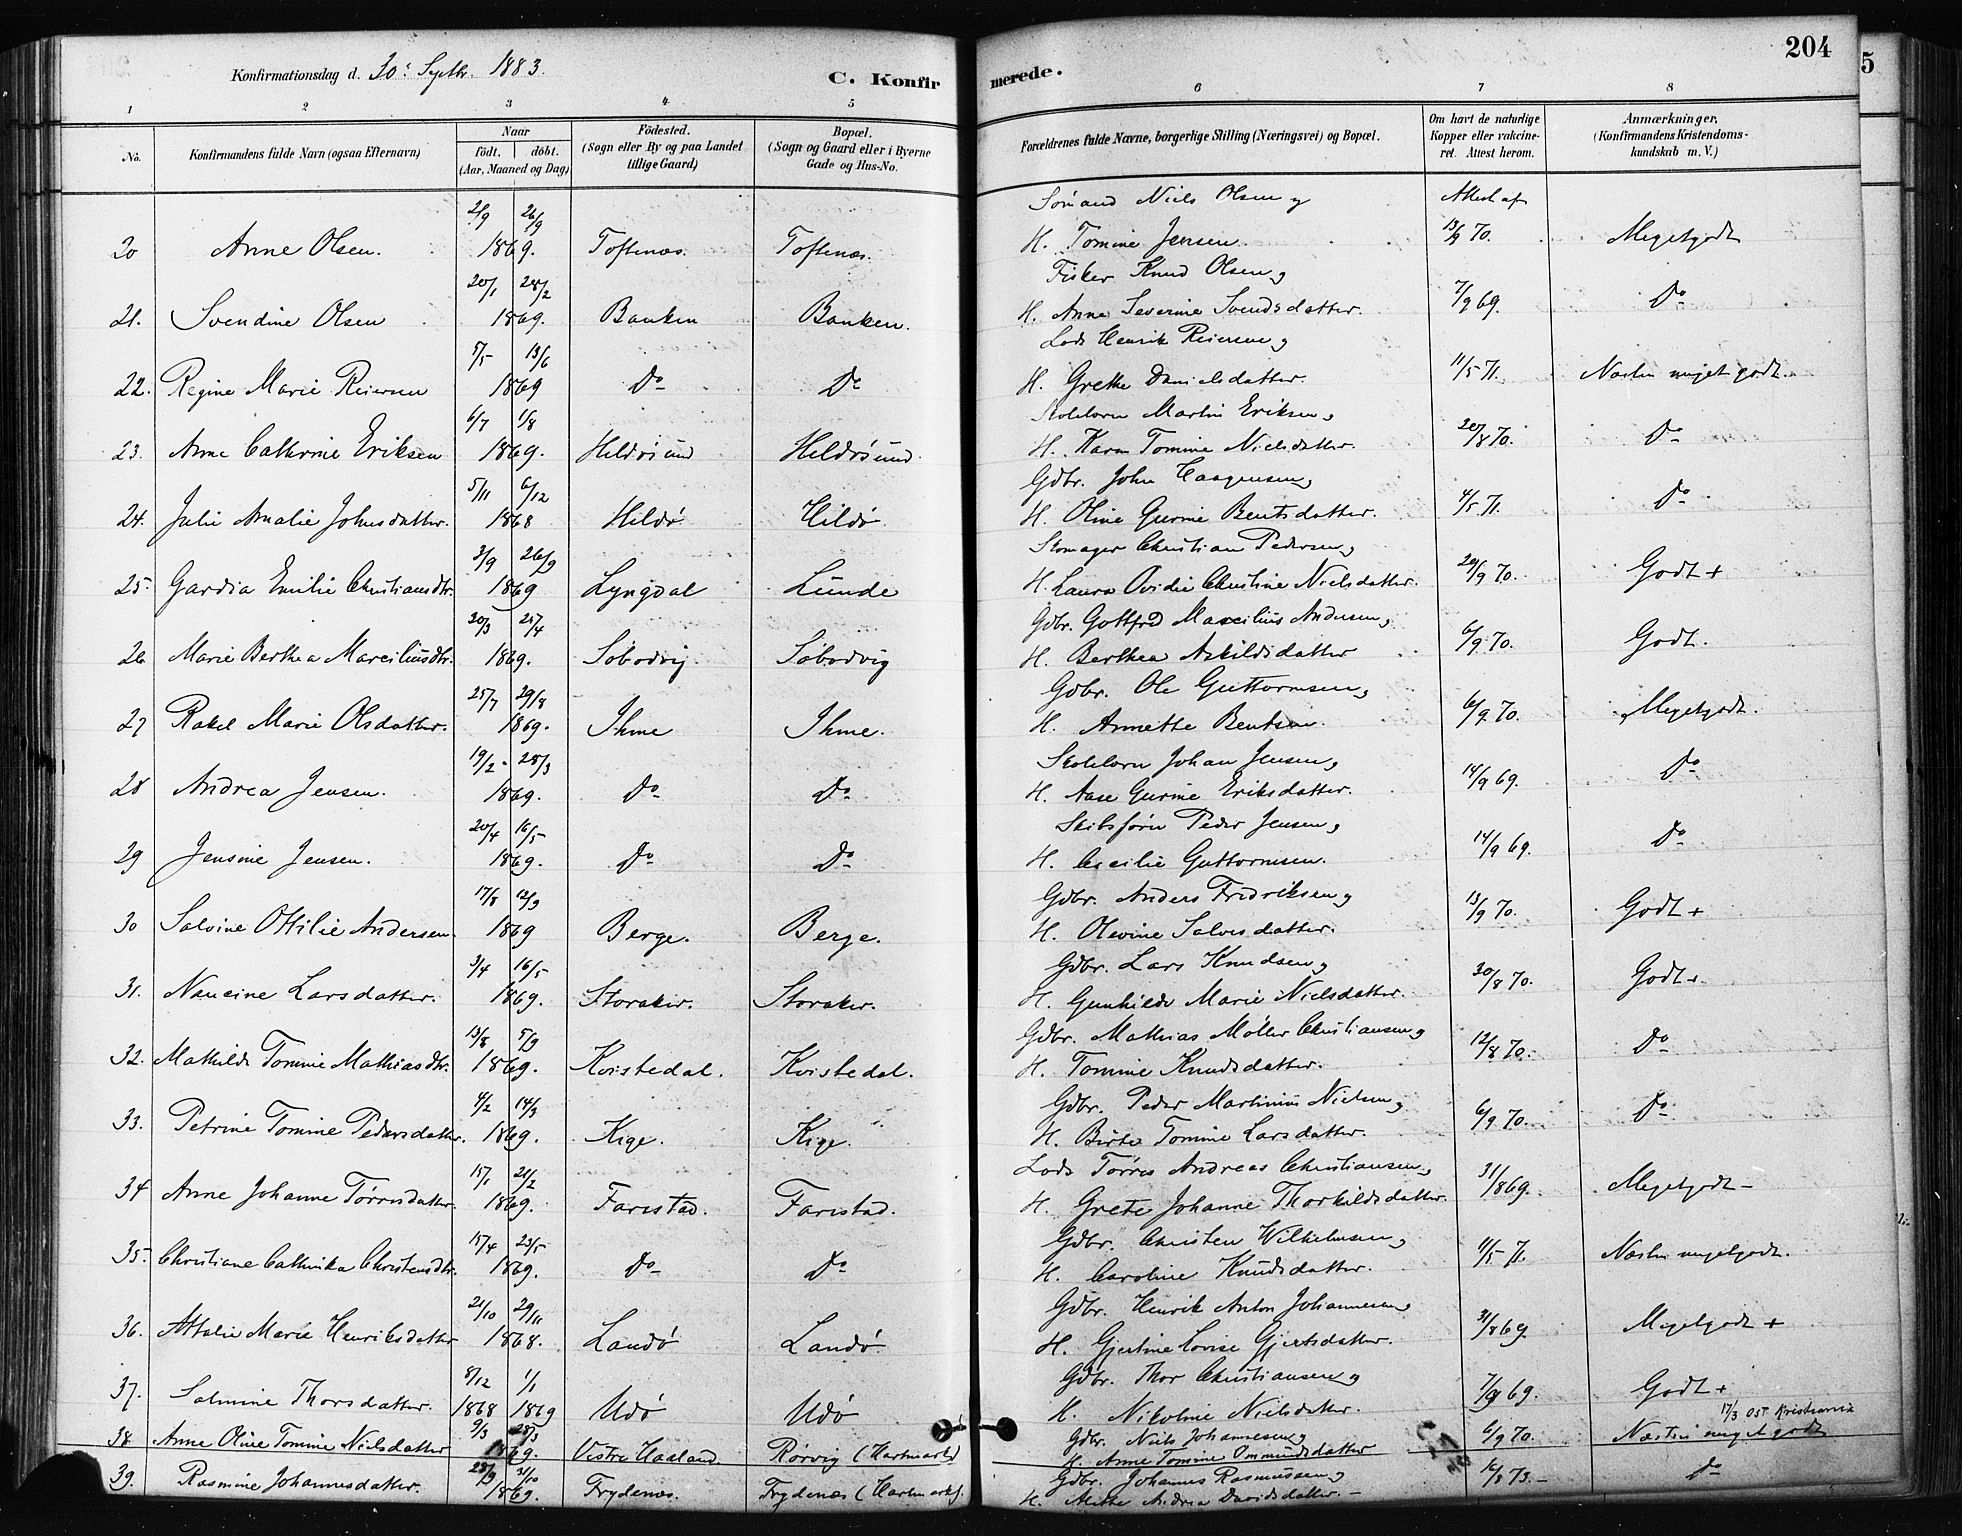 Konfirmationsdag d. 30' Septbr. 1883. C. Konfirmerede. 204
5
1 2 3 4 5 6 7 8
No. Konfirmandens fulde Navn (ogsaa Efternavn) Naar født. døbt. (Aar, Maaned og Dag) Fødested. (Sogn eller By og paa Landet tillige Gaard) Bopæl. (Sogn og Gaard eller i Byerne Gade og Hus-No. Forældrenes fulde Navne, borgerlige Stilling (Næringsvei) og Bopæl. Om havt de naturlige Kopper eller vakcineret. Attest herom. Anmærkninger. (Konfirmandens Kristendomskundskab m. V.)
2/9 26/9 Sømand Niels Olsen og Attest af
20 Anne Olsen. 1869. Toftenæs. Toftenæs. H. Tomine Jensen. 13/9 70. Megetgodt
20/1 28/2 Fisker Knud Olsen og
21. Svendine Olsen 1869. Banken Banken. H. Anne Severine Svendsdatter. 7/9 69. Do
5/5 13/6 Lods Henrik Reiersen og
22. Regine Marie Reiersen 1869 Do Do H. Grethe Danielsdatter. 11/5 71. Næsten meget godt.
6/7 1/8 Martin Eriksen,
23. Anne Cathrine Eriksen 1869. Hildøsund Hildøsund. H. Karen Tomine Nielsdatter. 20/8 70. Do
5/11 6/12 Gdbr. John Haagensen,
24. Julie Amalie Johnsdatter. 1868 Hildø Hildø. H. Oline Gurine Bentsdatter. 4/5 71. Do
3/9 26/9 Skomager Christian Pedersen,
25. Gardia Emilie Christiansdtr. 1869 Lyngdal Lunde H. Laura Ovidie Christine Nielsdatter. 20/9 70. Godt +
20/3 25/4 Gdbr. Gottfred Marcilius Andersen,
26 Marie Berthea Marciliusdtr. 1869. Søbodvig. Søbodvig H. Berthea Askildsdatter 6/9 70. Godt.
25/7 29/8 Gdbr. Ole Guttormsen,
27 Rakel Marie Olsdatter. 1869. Ihme Ihme. H. Annette Bentsen. 6/9 70. Megetgodt.
19/2 28/3 Johan Jensen,
28 Andrea Jensen. 1869. Do Do H. Aase Gurine Eriksdatter. 14/9 69. Do
20/4 16/5 Skibsfører Peder Jensen,
29 Jensine Jensen. 1869. Do Do H. Cecilie Guttormsen. 14/9 69. Do
17/8 12/9 Gdbr. Anders Fredriksen og
30 Salvine Ottilie Andersen. 1869 Berge. Berge. H. Olevine Salvesdatter. 13/9 70. Godt +
3/4 16/5 Gdbr. Lars Knudsen og
31. Nancine Larsdatter. 1869. Storaker. Storaker. H. Gunhilde Marie Nielsdatter. 30/8 70. Godt +
13/8 5/9 Gdbr. Mathias Møller Christiansen og
32. Mathilde Tomine Mathiasdtr. 1869. Kvistedal. Kvistedal. H. Tomine Knudsdatter. 12/8 70. Do
4/2 14/3 Gdbr. Peder Martinius Nielsen,
33. Petrine Tomine Pedersdatter. 1869. Kige. Kige. H. Birte Tomine Larsdatter. 6/9 70. Do
15/1 21/2 Lods Tørres Andreas Christiansen,
34 Anne Johanne Tørresdatter 1869. Farestad. Farestad. H. Grete Johanne Thorkildsdatter. 31/8 69. Megetgodt -
15/4 23/5 Gdbr. Christen Wilhelmsen,
35. Christiane Cathinka Christensdtr. 1869. Do Do H. Caroline Knudsdatter. 11/5 71. Næsten megetgodt.
21/10 29/11 Gdbr. Henrik Anton Johannesen,
36. Attalie Marie Henriksdatter 1868. Landø Landø. H. Gjertine Lovise Gjertsdatter. 31/8 69. Megetgodt +
8/12 1/1 Gdbr. Thor Christiansen og
37. Salmine Thorsdatter. 1868 1869 Udø Udø H. Nikoline Nielsdatter. 7/9 69. Godt +
9/3 28/3 Gdbr. Niels Johannesen og 17/3 05 Kristiania
38 Anne Oline Tomine Nielsdatter 1869. Vestre Haaland Rørvig (Hartmark) H. Anne Tomine Ommundsdatter 6/9 70. Næsten megetgodt
28/9 31/10 Gdbr. Johannes Rasmussen og
39. Rasmine Johannesdatter. 1869. Frydenæs. Frydenæs (Hartmark). H. Mette Andrea Davidsdatter. 16/8 73. Do